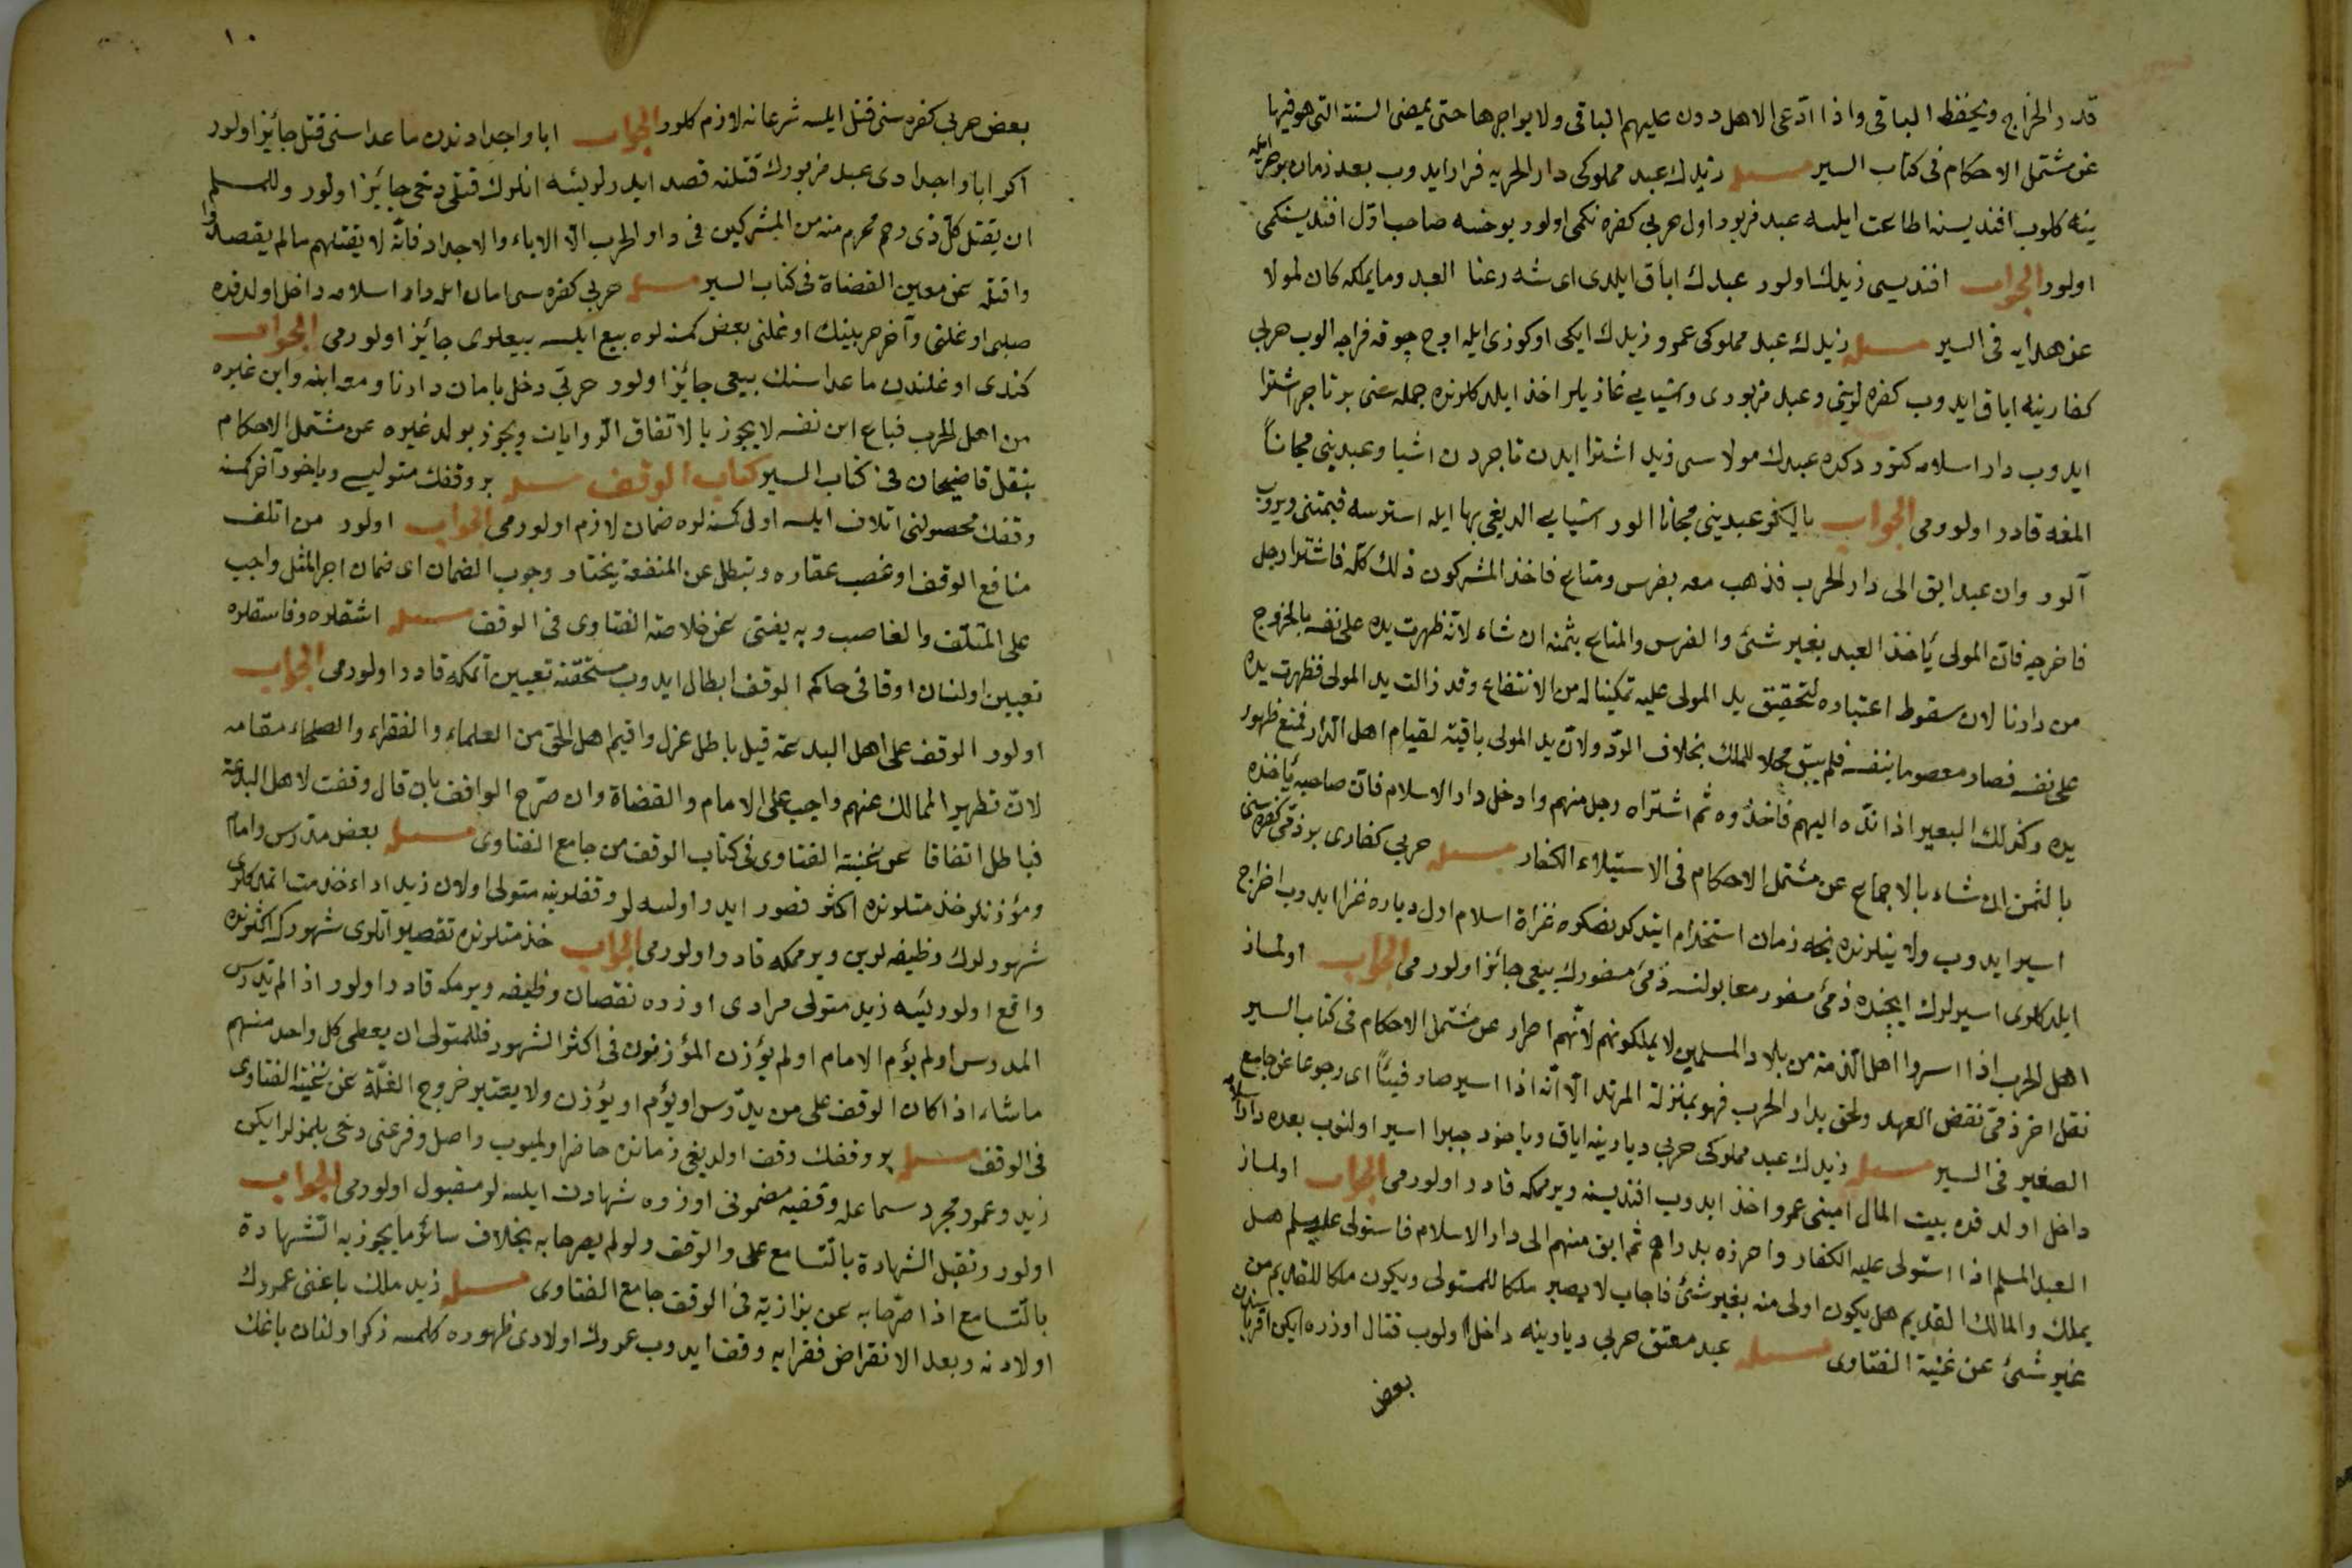 قدر الخراج ويحفظ الباقى واذا ادّعى الاهل دون عليهم الباقى ولا يواجرها حتى يمضى السنة التى هو فيها
عن مشتمل الاحكام فى كتاب السير مسئله زيدك عبد مملوكى دار الحربه فرار ايدوب بعد زمان بو حربى ايله
ينه كلوب افنديسنه اطاعت ايلسه عبد مزبور اول حربى كفره نكمى اولور يوخسه صاحب اوّل افنديسنكمى
اولور الجواب افنديسى زيدك اولور عبدك اباق ايلدى اى شه رعنا العبد وما يملكه كان لمولا
عن هدايه فى السير مسئله زيدك عبد مملوكى عمرو زيدك ايكى اوكوزى ايله اوچ چوقه فراجه الوب حربى
كفارينه اباق ايدوب كفره لرينى وعبد مزبورى واشيايى غازيلر اخذ ايلدكلرنده جمله سنى بر تاجر اشترا
ايدوب دار اسلامه كتوردكده عبدك مولاسى زيد اشترا ايدن تاجردن اشيا وعبدينى مجاناً
المغه قادر اولورمى الجواب باليكز عبدينى مجانا الور اشيايى الديغى بها ايله استرسه قيمتنى ويروب
آلور وان عبد ابق الى دار الحرب فذهب معه بفرس ومتاع فاخذ المشركون ذلك كلّه فاشترا رجل
فاخرجه فانّ المولى يأخذ العبد بغير شئ والفرس والمتاع بثمنه ان شاء لانّه ظهرت يده على نفسه بالخروج
من دارنا لان سقوط اعتباره لتحقيق يد المولى عليه تمكينا له من الانتفاع وقد زالت يد المولى فظهرت يده
على نفسه فصار معصوما بنفسه فلم يبق محلا للملك بخلاف المردّد ولانّ يد المولى باقية لقيام اهل الدّار فمنع ظهور
يده وكذلك البعير اذا ندّه اليهم فاخذوه ثم اشتراه رجل منهم وادخل دار الاسلام فانّ صاحبه يأخذه
بالثمن ان شاء بالاجماع عن مشتمل الاحكام فى الاستيلاء الكفار مسئله حربى كفارى بر ذمّى كفره سنى
اسير ايدوب ولايتلرنده نجه زمان استخدام ايتدكدنصكره غزاة اسلام اول دياره غزا ايدوب اخراج
ايلدكلرى اسيرلرك ايچنده ذمّئ مسفور معا بولنسه ذمّئ مسفورك بيعى جائز اولورمى الجواب اولماز
اهل الحرب اذا اسروا اهل الذمّة من بلاد المسلمين لا يملكونهم لانّهم احرار عن مشتمل الاحكام فى كتاب السير
نقل اخر ذمّى نقض العهد ولحق بدار الحرب فهو بمنزلة المرتد الّا انّه اذا اسير صار فيئاً اى رجوعا عن جامع
الصغير فى السير مسئله زيدك عبد مملوكى حربى ديارينه اباق وياخود جبرا اسير اولنوب بعده دار اسلامه
داخل اولدقده بيت المال امينى عمرو اخذ ايدوب افنديسنه ويرمكه قادر اولورمى الجواب اولماز
العبد المسلم اذا استولى عليه الكفار واحرزه بدراهم ثم ابق منهم الى دار الاسلام فاستولى عليه مسلم هل
يملك والمالك القديم هل يكون اولى منه بغير شئ فاجاب لا يصير ملكا للمستولى ويكون ملكا للقديم من
غير شئ عن غنية الفتاوى مسئله عبد معتق حربى ديارينه داخل اولوب قتال اوزره ايكن اقرباسندن
بعض
١٠
بعض حربى كفره سنى قتل ايلسه شرعا نه لازم كلور الجواب ابا واجدادندن ما عداسنى قتل جائز اولور
اكر ابا واجدادى عبد مزبورك قتلنه قصد ايدرلر ايسه انلرك قتلى دخى جايز اولور وللمسلم
ان يقتل كلّ ذى رحم محرم منه من المشركين فى دار الحرب الّا الاباء والاجداد فانّه لا يقتلهم ما لم يقصدوا
واقتله عن معين القضاة فى كتاب السير مسئله حربى كفره سى امان ايله دار اسلامه داخل اولدقده
صلبى اوغلنى وآخر حربينك اوغلنى بعض كمسنه لره بيع ايلسه بيعلرى جائز اولورمى الجواب
كندى اوغلندن ما عداسنك بيعى جائز اولور حربى دخل بامان دارنا ومعه ابنه وابن غيره
من اهل الحرب فباع ابن نفسه لا يجوز بالاتفاق الروايات ويجوز بولد غيره عن مشتمل الاحكام
بنقل قاضيخان فى كتاب السير كتاب الوقف مسئله بر وقفك متوليسى وياخود آخر كمسنه
وقفك محصولنى اتلاف ايلسه اولى كمسنه لره ضمان لازم اولورمى الجواب اولور من اتلف
منافع الوقف او غصب عقاره وتبطل عن المنفعة يختار وجوب الضمان اى ضمان اجر المثل واجب
على المتلف والغاصب وبه يفتى عن خلاصة الفتاوى فى الوقف مسئله اشقلره وفاسقلره
تعيين اولنان اوقافى حاكم الوقف ابطال ايدوب مستحقنه تعيين اتمكه قادر اولورمى الجواب
اولور الوقف على اهل البدعة قيل باطل عزل واقيم اهل الحق من العلماء والفقراء والصلحاء مقامه
لانّ تطهير الممالك عنهم واجب على الامام والقضاة وان صرّح الواقف بان قال وقفت لاهل البدعة
فباطل اتفاقا عن غنية الفتاوى فى كتاب الوقف من جامع الفتاوى مسئله بعض مدرس وامام
ومؤذنلر خذمتلرنده اكثر قصور ايدر اولسه لر وقفلرينه متولى اولان زيد اداء خذمت اتمدكلرى
شهورلرك وظيفه لرين ويرممكه قادر اولورمى الجواب خذمتلرنده تقصير اتلرى شهورك اكثرنده
واقع اولور ايسه زيد متولى مرادى اوزره نقصان وظيفه ويرمكه قادر اولور اذا لم يدرس
المدرس او لم يؤم الامام او لم يؤذن المؤذنون فى اكثر الشهور فللمتولى ان يعطى كل واحد منهم
ما شاء اذا كان الوقف على من يدرّس او يؤم او يؤذن ولا يعتبر خروج الغلّة عن غنية الفتاوى
فى الوقف مسئله بر وقفك وقف اولديغى زمانده حاضر اولميوب واصل وفرعنى دخى بلمزلر ايكن
زيد وعمرو مجرد سماعله وقفيه مضمونى اوزره شهادت ايلسه لر مقبول اولورمى الجواب
اولور وتقبل الشهادة بالتسامع على والوقف ولو لم يصرحا به بخلاف سائر ما يجوز به الشهادة
بالتسامع اذا صرّحا به عن بزازية فى الوقف جامع الفتاوى مسئله زيد ملك باغنى عمروك
اولادنه وبعد الانقراض فقرايه وقف ايدوب عمروك اولادى ظهوره كلمسه ذكر اولنان باغك